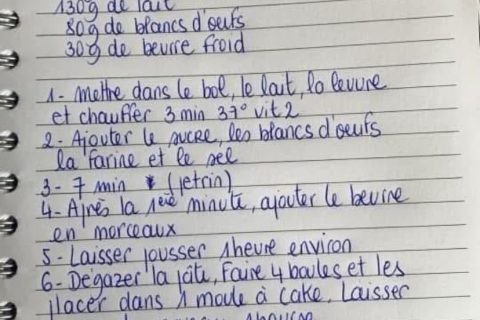 130g de lait
80g de blancs d'oeufs
30g de beurre froid
1- Mettre dans le bol, le lait, la levure
et chauffer 3 min 37° vit 2
2- Ajouter le sucre, les blancs d'oeufs
la farine et le sel
3- 7 min (petrin)
4- Après la 1ère minute, ajouter le beurre
en morceaux
5- Laisser pousser 1heure environ
6- Dégazer la pâte, Faire 4 boules et les
placer dans 1 moule à cake. Laisser